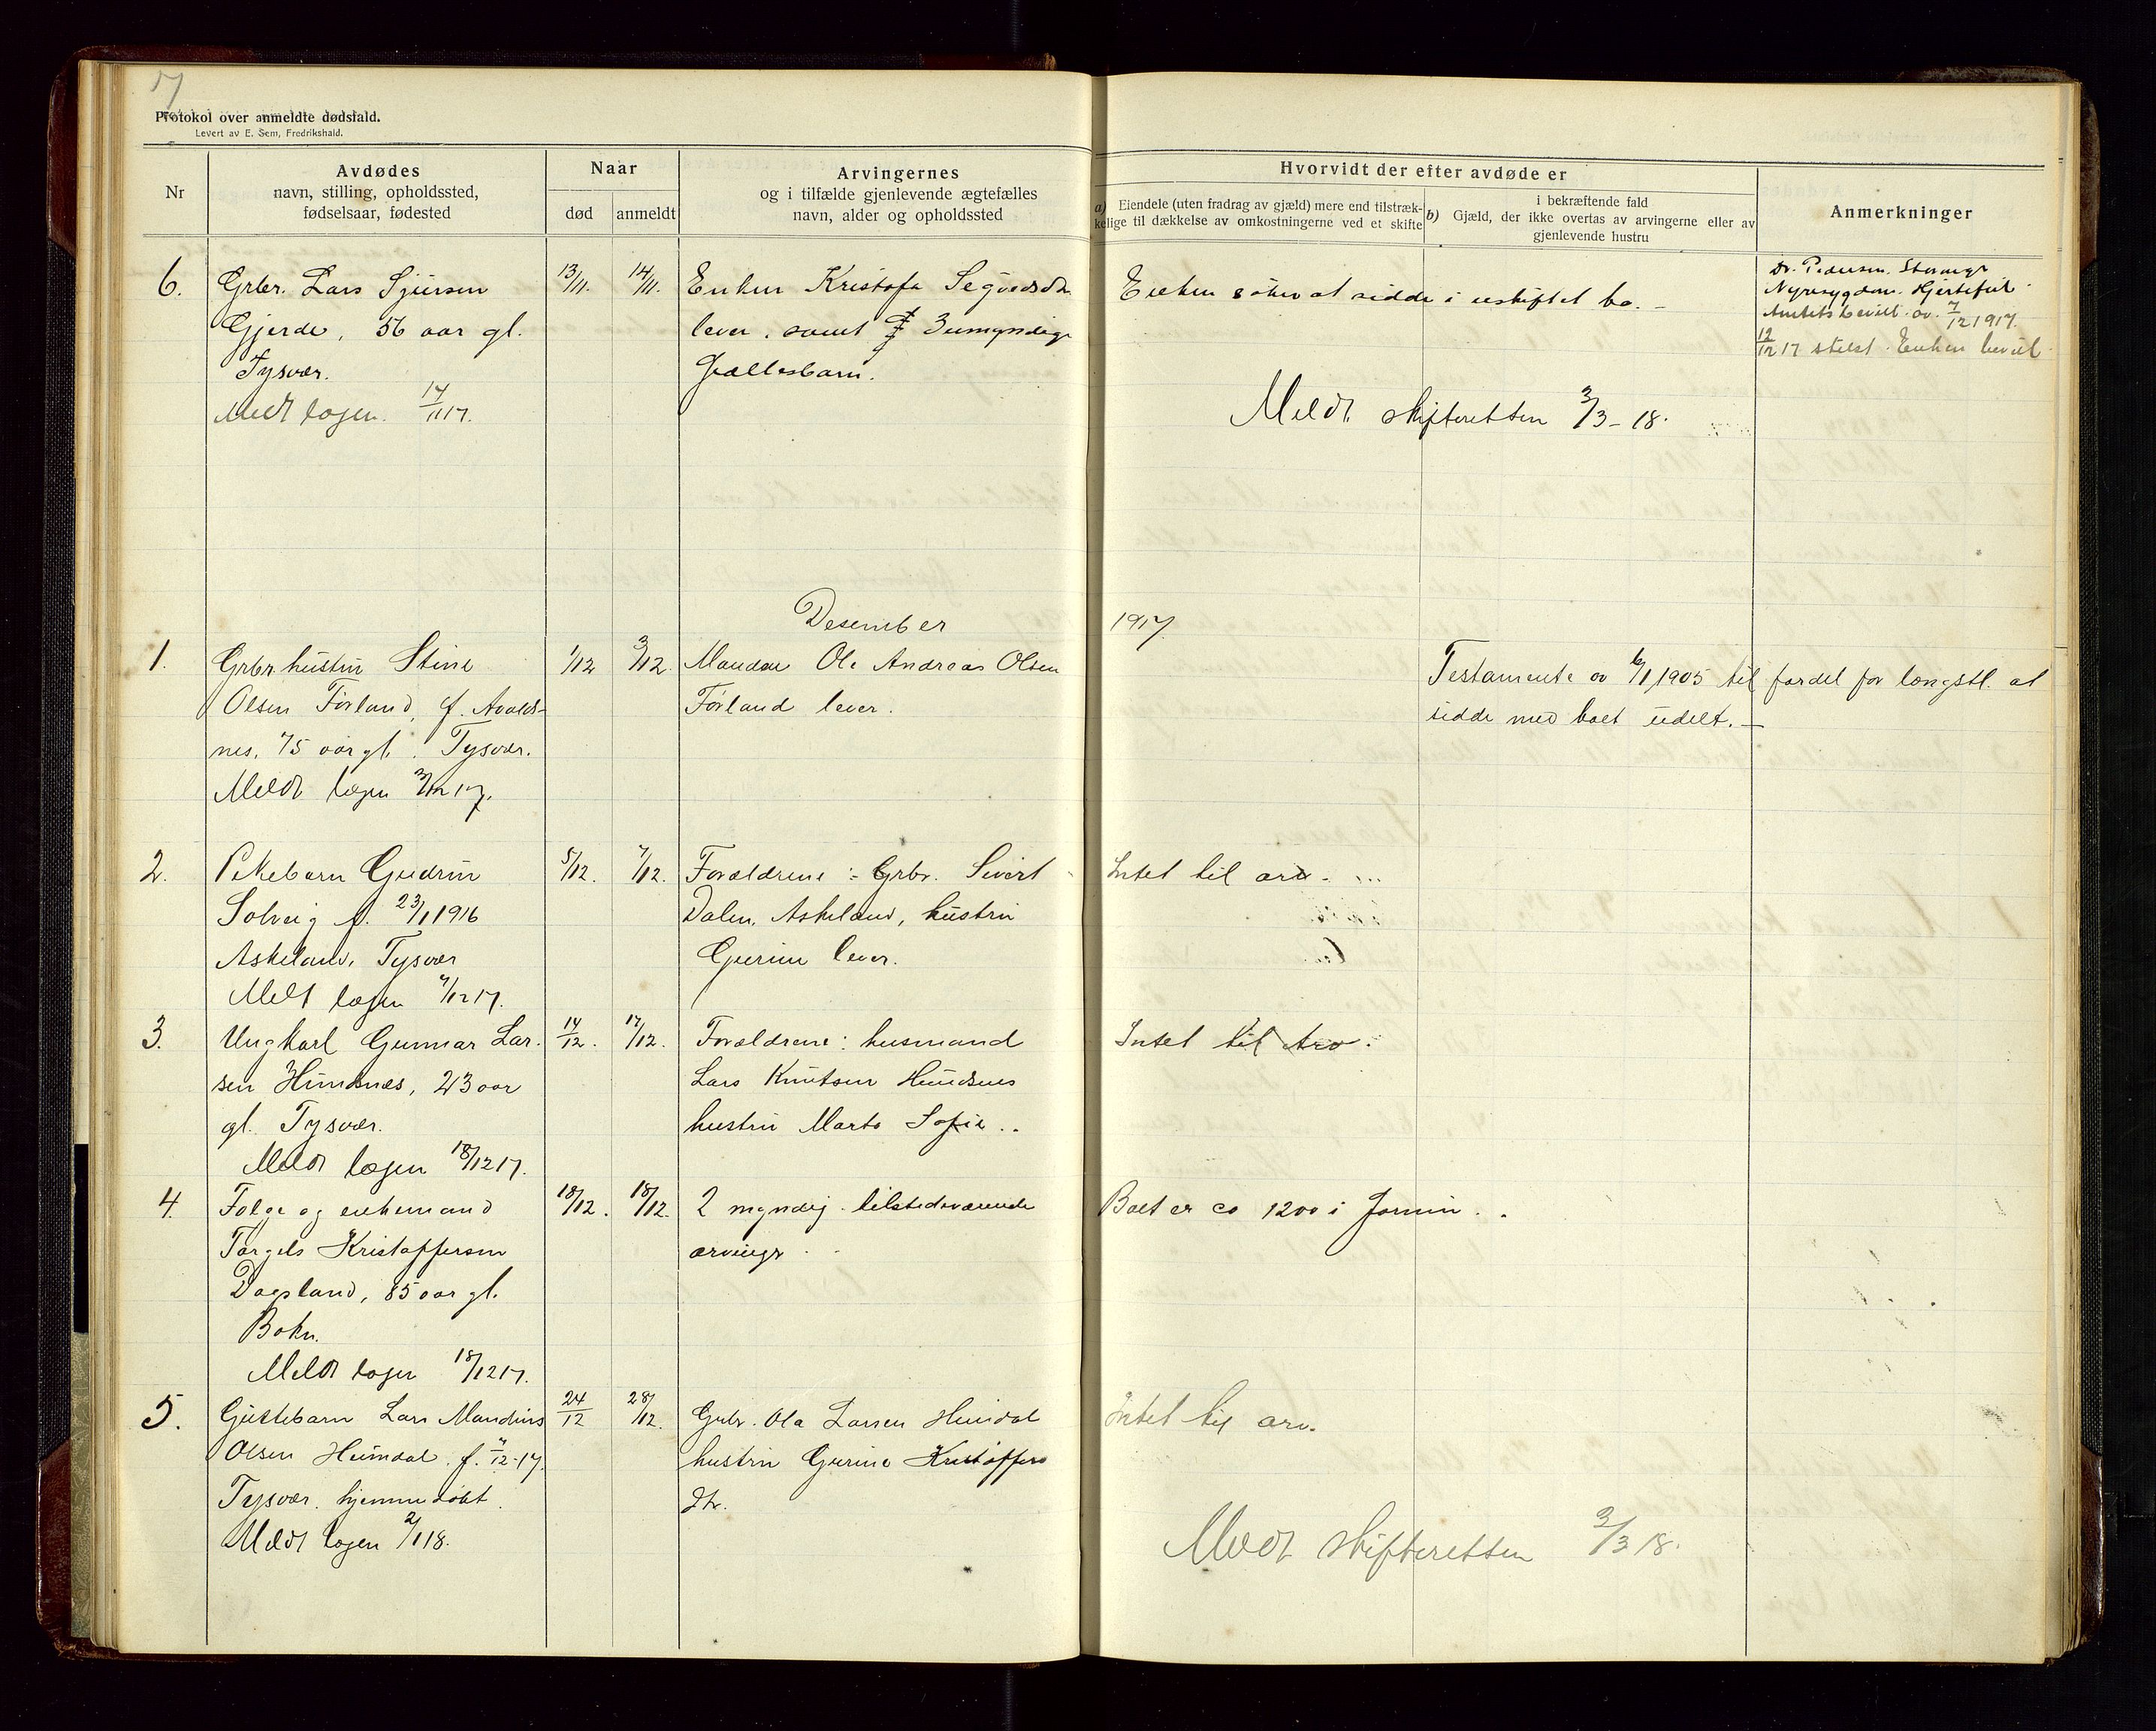 17
Protokol over anmeldte dødsfald.
Levert av E. Sem, Fredrikshald.
Nr
Avdødes
navn, stilling, opholdssted,
fødselsaar, fødested
Naar
død
anmeldt
Arvingernes
og i tilfælde gjenlevende ægtefælles
navn, alder og opholdssted
Hvorvidt der efter avdøde er
a) Eiendele (uten fradrag av gjæld) mere end tilstræk-
kelige til dækkelse av omkostningerne ved et skifte
i bekræftende fald
b) Gjæld, der ikke overtas av arvingerne eller av
gjenlevende hustru
Anmerkninger
6.
Grbr. Lars Sjursen
Gjerde, 56 aar gl.
Tysvær.
Meldt lægen. 17/11 17.
13/11.
14/11.
Enken Kristofa
lever. samt 3 umyndige
Fællesbarn.
Enken søker at sidde i uskiftet bo. -
Dr. Pedersen. Stavanger
Nyresygdom. Hjertefeil.
Amtets bevill. av 7/12 1917.
12/12 17 stelst Enken bevil
Meldt skifteretten 3/3 - 18.
Desember
1917
1.
Grbr.hustru Stine
Olsen Førland, f. Avalds-
nes, 75 aar gl. Tysvær.
Meldt lægen 3/12 17.
1/12
3/12.
Manden Ole Andreas Olsen
Førland lever.
Testamente av 1905 til fordel for længstl. at
sidde med boet udelt. -
2.
Pikebarn Gudrun
Solveig f. 23/1 1916
Askeland, Tysvær
Meldt lægen 7/12 17.
5/12.
7/12.
Forældrene :- Grbr. Sivert
Dalen, Askeland, hustru
Gurine lever.
Intet til arv.
3.
Ungkarl Gunnar Lar-
sen Hundsnes, 23 aar
gl. Tysvær.
Meldt lægen 18/12 17.
14/12.
17/12.
Forældrene: husmand
Lars Knutsen Hundsnes
hustru Marta Sofie ..
Intet til Arv.
4.
Følge og enkemand
Torgels Kristoffersen
Dagsland, 85 aar gl.
Bokn.
Meldt lægen 18/12 17.
18/12.
18/12.
2 myndig. tilstedeværende
arvinger
Boet er ca 1200 i Formue.
5.
Guttebarn Lars Mandius
Olsen Heimdal f. 7/12-17.
Tysvær. hjemmedøbt.
Meldt lægen 2/1 18.
24/12
28/12.
Grbr. Ola Larsen Heimdal
hustru Gurine Kristoffers
dtr.
Intet til arv.
Meldt skifteretten 3/3 18.